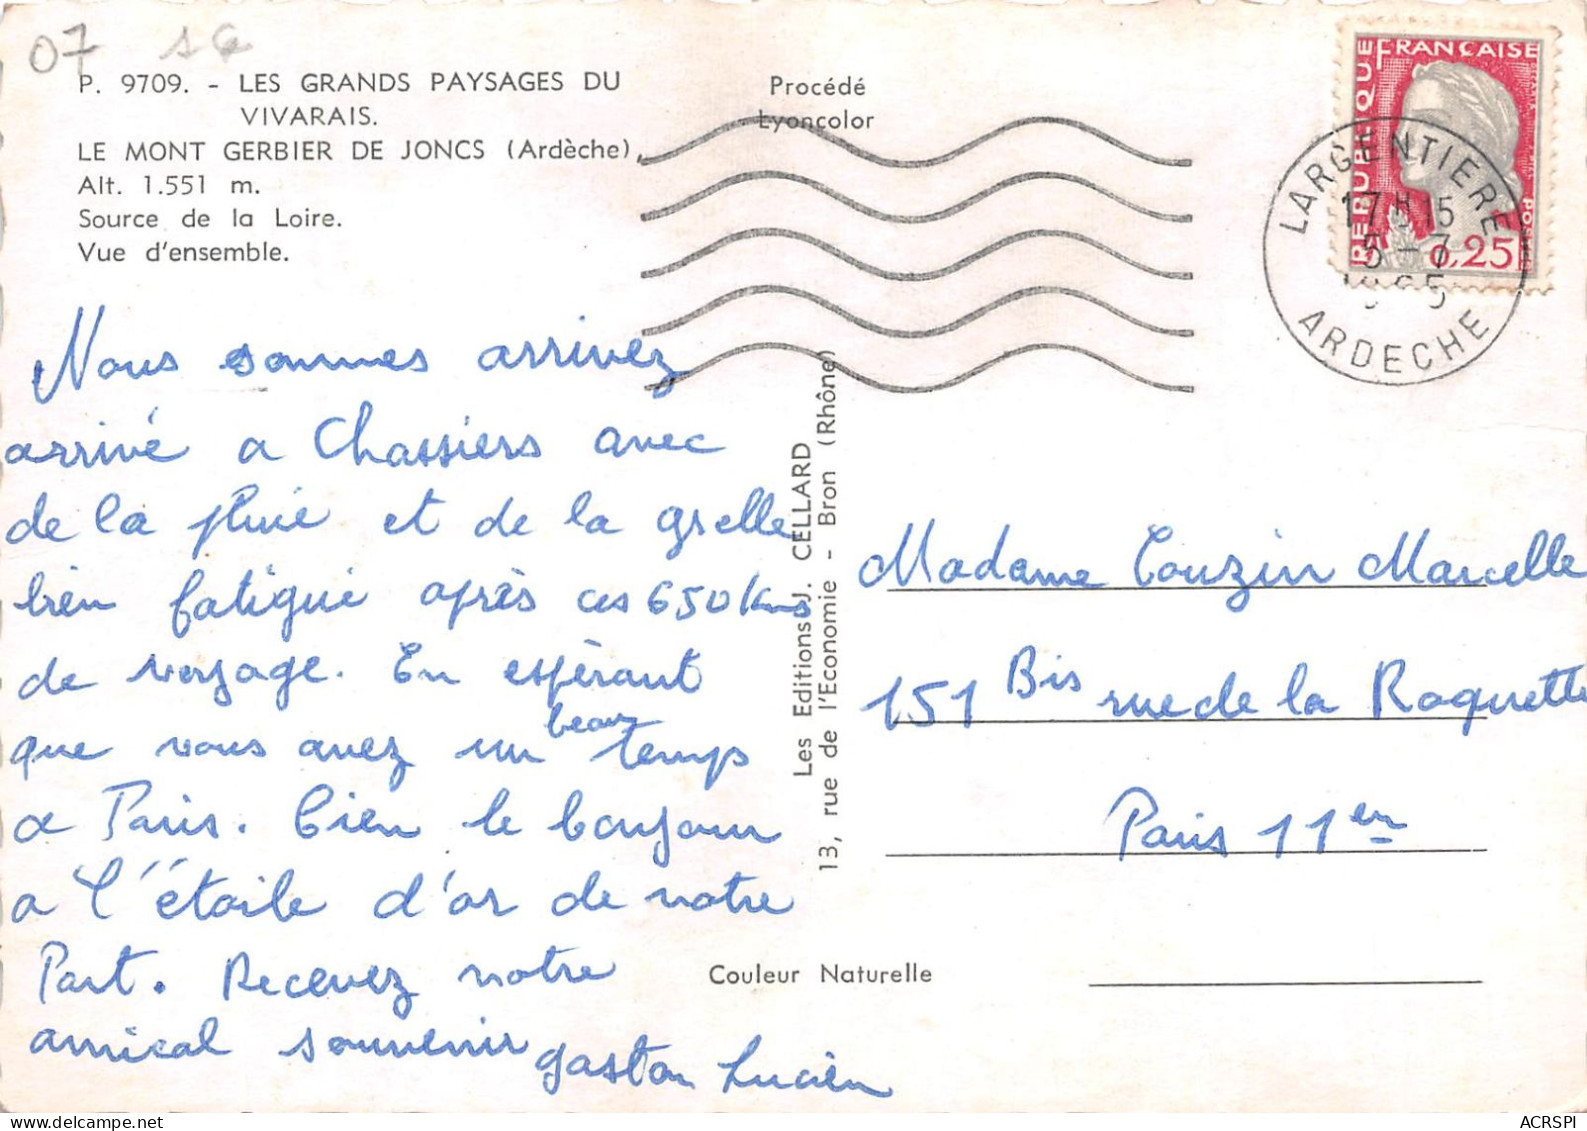 07
P. 9709. - LES GRANDS PAYSAGES DU
VIVARAIS.
LE MONT GERBIER DE JONCS (Ardèche),
Alt. 1.551 m.
Source de la Loire.
Vue d'ensemble.
Procédé
Lyoncolor
REPUBLIQUE FRANÇAISE
0,25
LARGENTIERE
17H15
5-7
1965
ARDECHE
Nous sommes arrivez
arrivé a Chassiers avec
de la pluie et de la grelle
bien fatigué après ces 650 kms
de voyage. En espérant
que vous avez un beau temps
a Paris. bien le bonjour
a l'étoile d'or de notre
Part. Recevez notre
amical souvenir gaston Lucien
Les Editions J. CELLARD
13, rue de l'Economie - Bron (Rhône)
Madame Touzin Marcelle
151 Bis rue de la Roquette
Paris 11en
Couleur Naturelle
ACRSPI